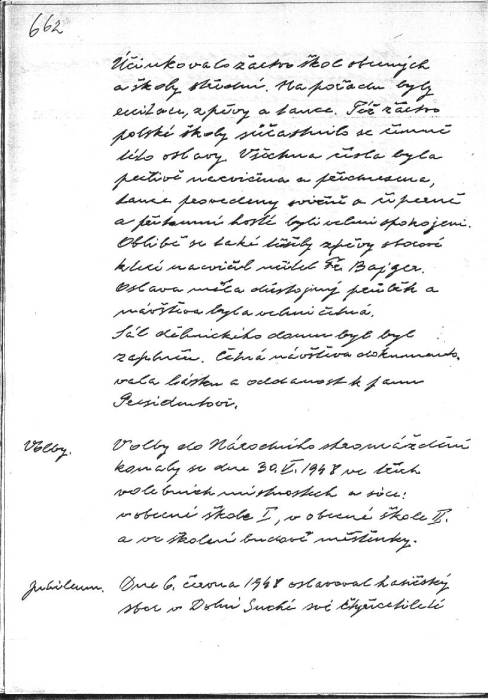 662
Účinkovalo žactvo škol obecných
a školy střední. Na pořadu byly
recitace, zpěvy a tance. Též žactvo
polské školy súčastnilo se činně
této oslavy. Všechna čísla byla
pečlivě nacvičena a přednesena,
tance provedeny svižně a úpravně
a přítomní hosté byli velmi spokojeni.
Oblibě se také těšily zpěvy sborové
které nacvičil učitel Fr. Bajger.
Oslava měla důstojný průběh a
návštěva byla velmi četná.
Sál dělnického domu byl byl
zaplněn. Četná návštěva dokumento-
vala lásku a oddanost k panu
Presidentovi.
Volby. Volby do Národního shromáždění
konaly se dne 30. V. 1948 ve třech
volebních místnostech a sice:
v obecné škole I, v obecné škole II.
a ve školní budově měšťanky.
Jubileum. Dne 6. června 1948 oslavoval hasičský
sbor v Dolní Suché své čtyřicetileté